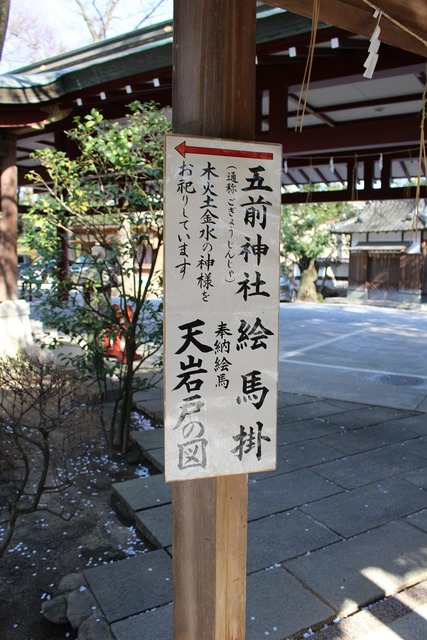 五前神社 絵馬掛
(通称 ごぎょうじんしゃ)
木火土金水の神様を
お祀りしています
奉納絵馬
天岩戸の図